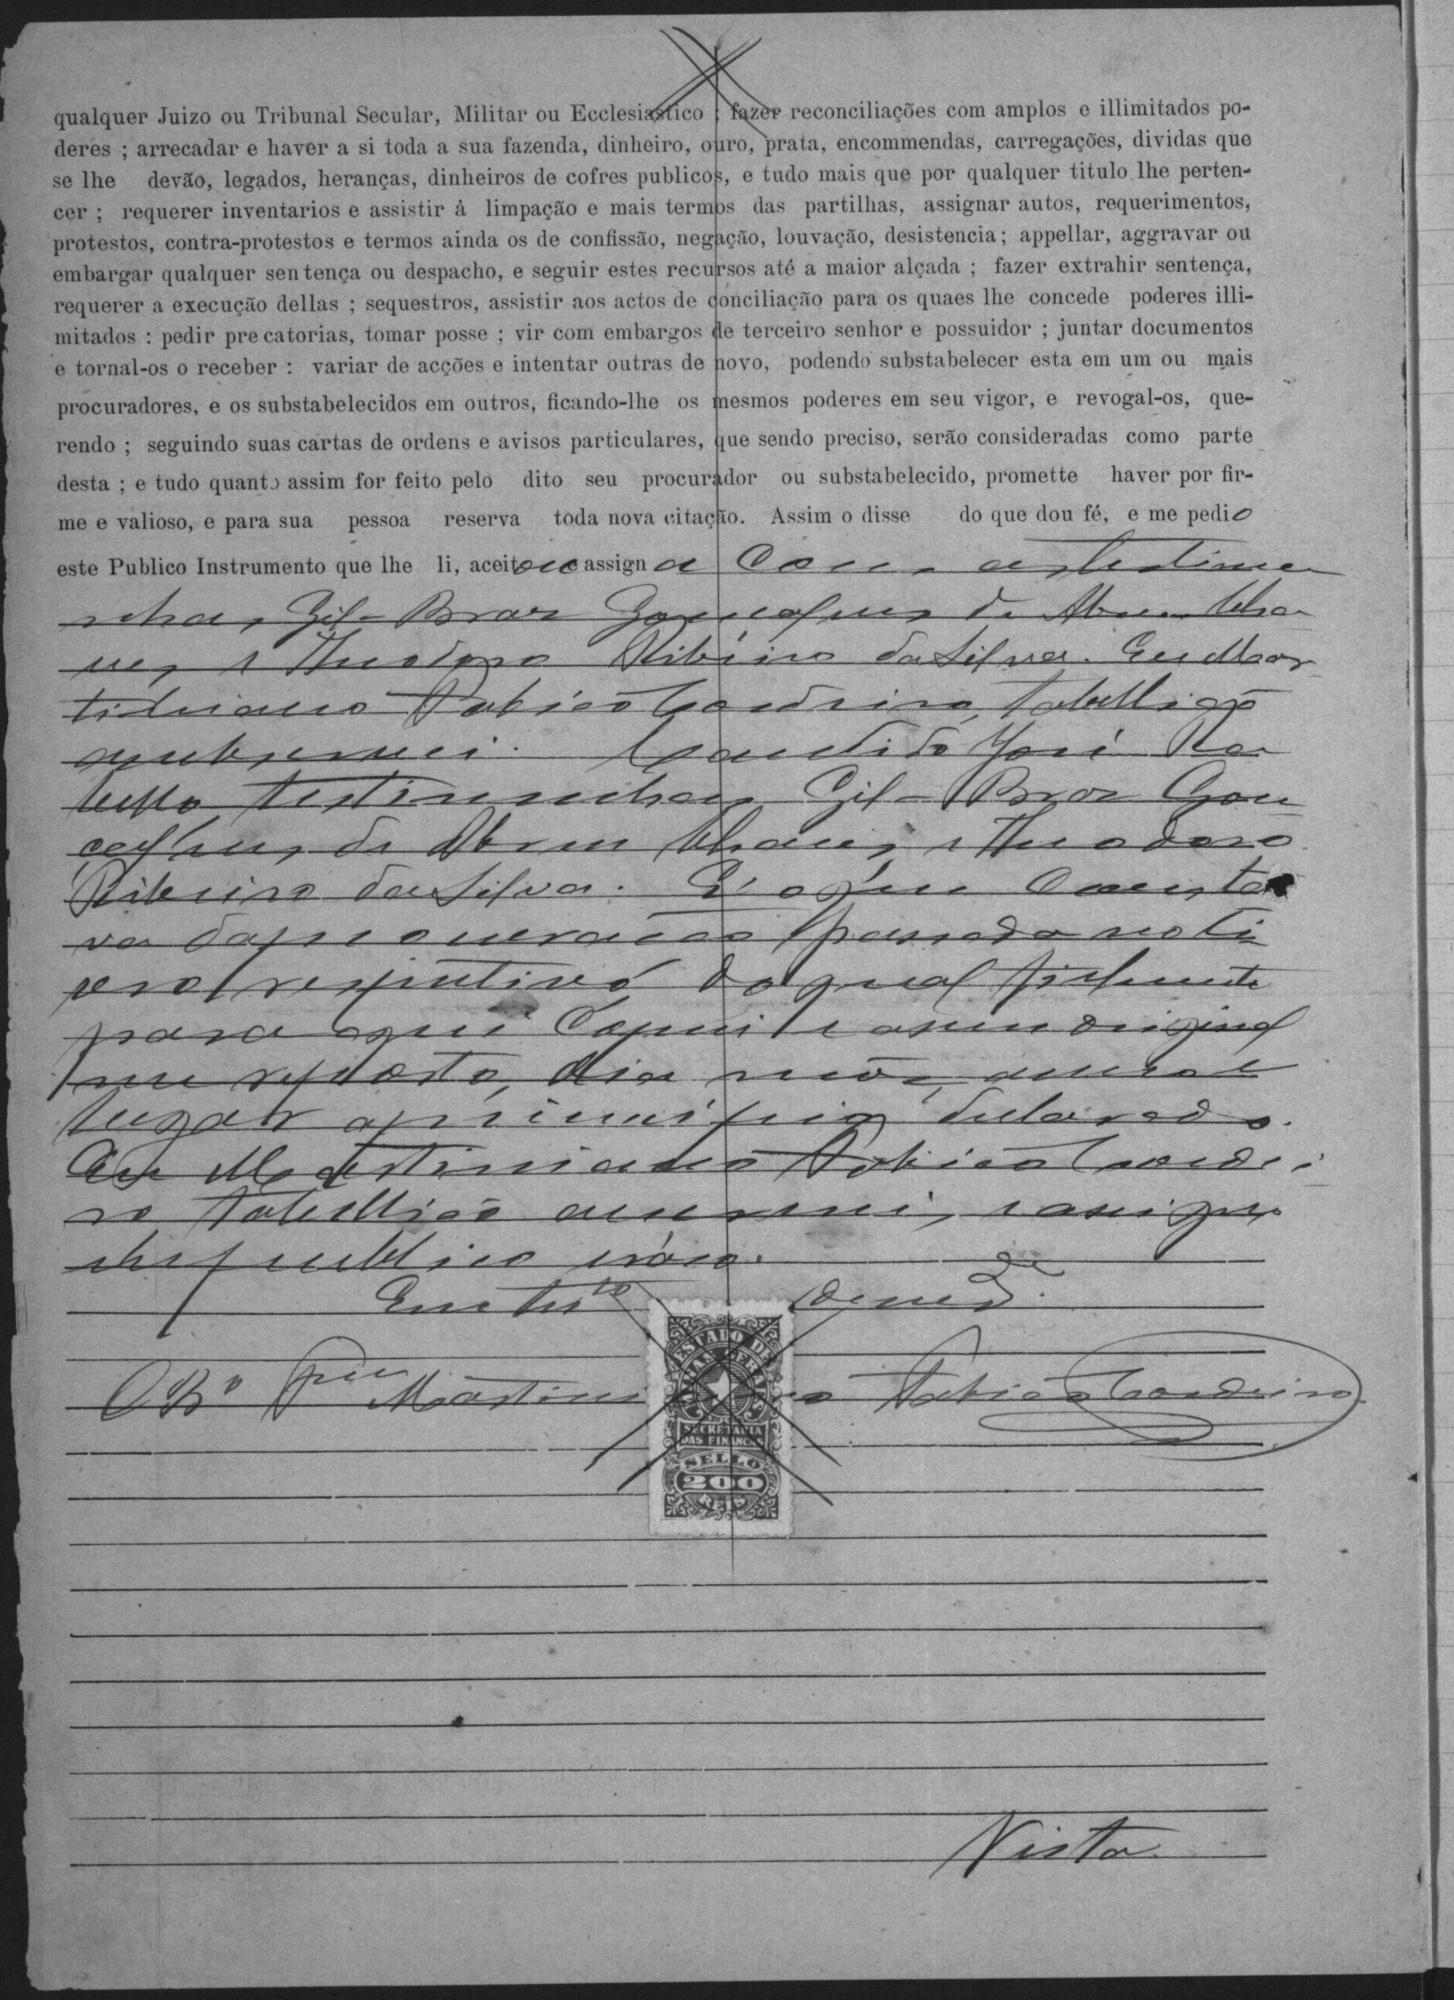 qualquer Juizo ou Tribunal Secular, Militar ou Ecclesiastico ; fazer reconciliações com amplos e illimitados po-
deres ; arrecadar e haver a si toda a sua fazenda, dinheiro, ouro, prata, encommendas, carregações, dividas que
se lhe devão, legados, heranças, dinheiros de cofres publicos, e tudo mais que por qualquer titulo lhe perten-
cer ; requerer inventarios e assistir á limpação e mais termos das partilhas, assignar autos, requerimentos,
protestos, contra-protestos e termos ainda os de confissão, negação, louvação, desistencia ; appellar, aggravar ou
embargar qualquer sentença ou despacho, e seguir estes recursos até a maior alçada ; fazer extrahir sentença,
requerer a execução dellas ; sequestros, assistir aos actos de conciliação para os quaes lhe concede poderes illi-
mitados : pedir precatorias, tomar posse ; vir com embargos de terceiro senhor e possuidor ; juntar documentos
e tornal-os o receber : variar de acções e intentar outras de novo, podendo substabelecer esta em um ou mais
procuradores, e os substabelecidos em outros, ficando-lhe os mesmos poderes em seu vigor, e revogal-os, que-
rendo ; seguindo suas cartas de ordens e avisos particulares, que sendo preciso, serão consideradas como parte
desta ; e tudo quanto assim for feito pelo dito seu procurador ou substabelecido, promette haver por fir-
me e valioso, e para sua pessoa reserva toda nova citação. Assim o disse do que dou fé, e me pedio
este Publico Instrumento que lhe li, aceitou e assigna com as testimu
nhas, Gil-Braz Gonçalves de Abreu Cha
ves e Theodoro Ribeiro da Silva. Eu Mar
tiniano Tobias Cordeiro, Tabellião
subscrevi. Candido José Ra
bello testimunhas Gil-Braz Gon
çalves de Abreu Chaves e Theodoro
Ribeiro da Silva. É o que consta
va da procuração passada no li
vro respectivo do qual fielmente
para aqui copiei e a seu original
me reporto, dia mêz, anno e
lugar a principio declarado.
Eu Martiniano Tobias Cordei
ro Tabellião escrevi, e assigno
em publico e razo.
Em testo de verde
O Bo Martiniano Tobias Cordeiro
ESTADO DE
MINAS GERAES
SECRETARIA
DAS FINANÇAS
SELLO
200
REIS
Vista